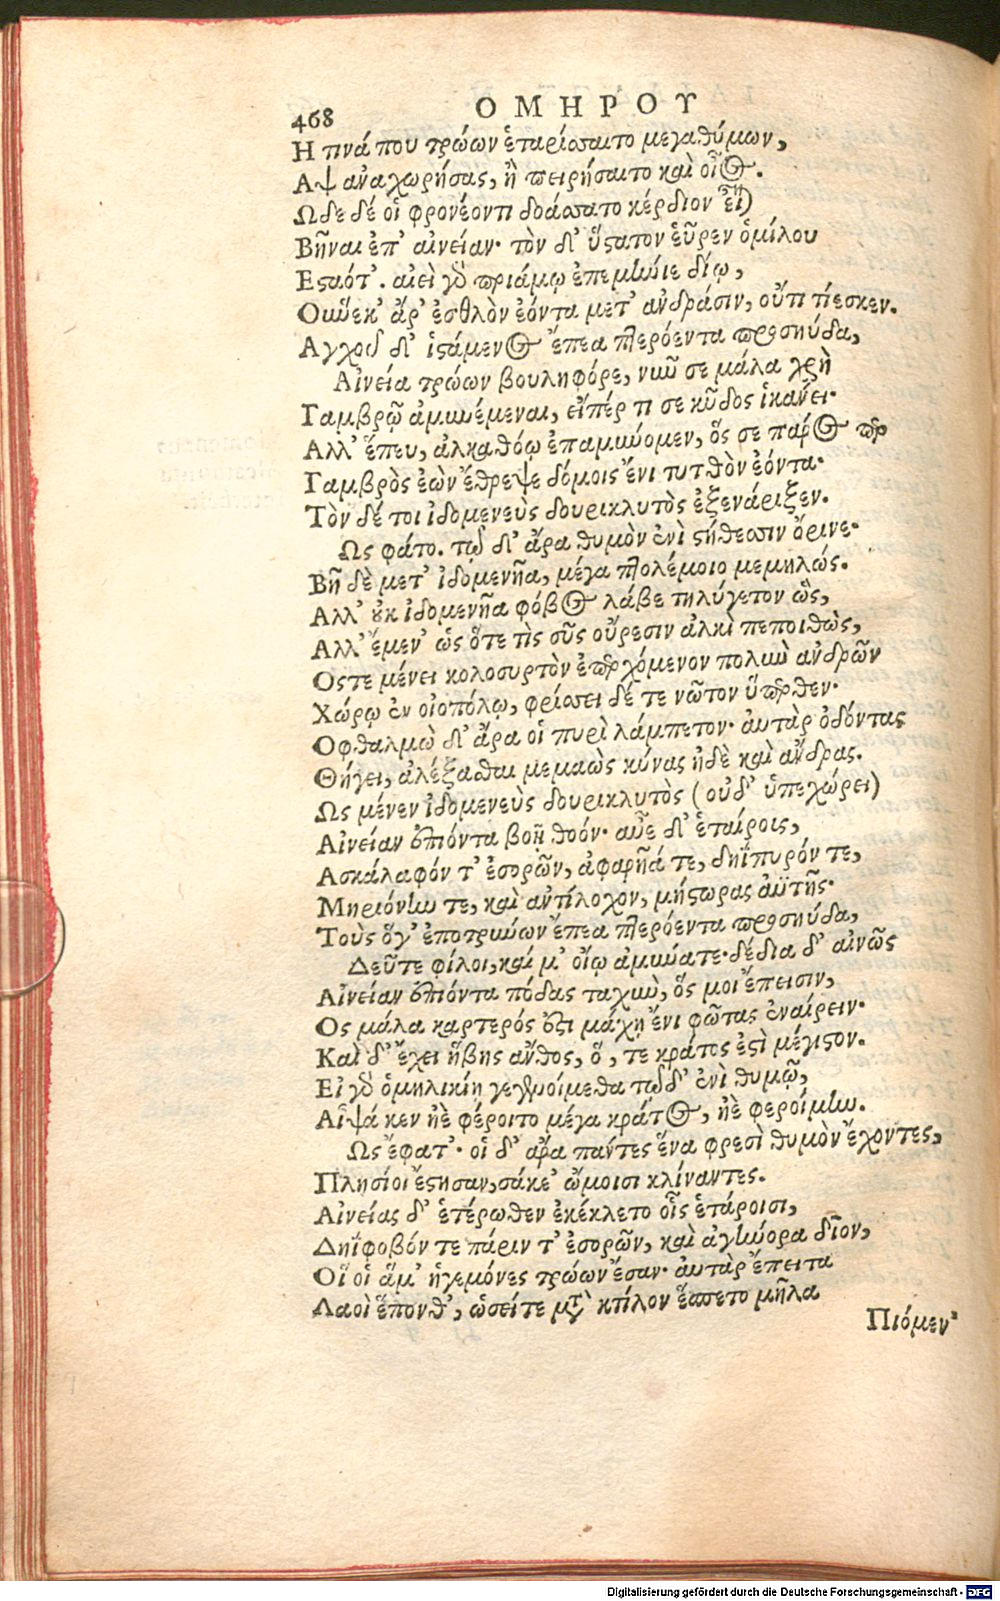 468
ΟΜΗΡΟΥ
Η τινά που τρώων ἑταρίσσαιτο μεγαθύμων,
Αψ ἀναχωρήσας, ἢ πειρήσαιτο καὶ οἶος.
Ωδε δέ οἱ φρονέοντι δοάσσατο κέρδιον εἶναι
Βῆναι ἐπ' αἰνείαν· τὸν δ' ὕστατον εὗρεν ὁμίλου
Εσταότ'. αἰεὶ γὰρ πριάμῳ ἐπεμήνιε δίῳ,
Οὕνεκ' ἄρ' ἐσθλὸν ἐόντα μετ' ἀνδράσιν, οὔτι τίεσκεν.
Αγχοῦ δ' ἱστάμενος ἔπεα πτερόεντα προσηύδα,
Αἰνεία τρώων βουληφόρε, νῦν σε μάλα χρὴ
Γαμβρῷ ἀμυνέμεναι, εἴπέρ τι σε κῦδος ἱκάνει·
Αλλ' ἕπευ, ἀλκαθόῳ ἐπαμύνομεν, ὅς σε πάρος περ
Γαμβρὸς ἐὼν ἔθρεψε δόμοις ἔνι τυτθὸν ἐόντα·
Τὸν δέ τοι ἰδομενεὺς δουρικλυτὸς ἐξενάριξεν.
Ως φάτο. τῷ δ' ἄρα θυμὸν ἐνὶ στήθεσσιν ὄρινε·
Βῆ δὲ μετ' ἰδομενῆα, μέγα πτολέμοιο μεμηλώς.
Αλλ' οὐκ ἰδομενῆα φόβος λάβε τηλύγετον ὣς,
Αλλ' ἔμεν' ὡς ὅτε τὶς σῦς οὔρεσιν ἀλκὶ πεποιθὼς,
Οστε μένει κολοσυρτὸν ἐπερχόμενον πολὺν ἀνδρῶν
Χώρῳ ἐν οἰοπόλῳ, φρίσσει δέ τε νῶτον ὕπερθεν·
Οφθαλμὼ δ' ἄρα οἱ πυρὶ λάμπετον· αὐτὰρ ὀδόντας
Θήγει, ἀλέξασθαι μεμαὼς κύνας ἠδὲ καὶ ἄνδρας.
Ως μένεν ἰδομενεὺς δουρικλυτὸς (οὐδ' ὑπεχώρει)
Αἰνείαν ἐπιόντα βοῇ θοόν· αὖε δ' ἑταίροις,
Ασκάλαφόν τ' ἐσορῶν, ἀφαρῆά τε, δηΐπυρόν τε,
Μηριόνην τε, καὶ ἀντίλοχον, μήστωρας ἀϋτῆς·
Τοὺς ὅγ' ἐποτρύνων ἔπεα πτερόεντα προσηύδα,
Δεῦτε φίλοι, καί μ' οἴῳ ἀμύνατε· δέδια δ' αἰνῶς
Αἰνείαν ἐπιόντα πόδας ταχὺν, ὅς μοι ἔπεισιν,
Ος μάλα καρτερός ἐστι μάχῃ ἔνι φῶτας ἐναίρειν·
Καὶ δ' ἔχει ἥβης ἄνθος, ὅ, τε κράτος ἐστὶ μέγιστον.
Εἰ γὰρ ὁμηλικίη γε γενοίμεθα τῷδ' ἐνὶ θυμῷ,
Αἶψά κεν ἠὲ φέροιτο μέγα κράτος, ἠὲ φεροίμην.
Ως ἔφατ'· οἱ δ' ἄρα πάντες ἕνα φρεσὶ θυμὸν ἔχοντες,
Πλησίοι ἔστησαν, σάκε' ὤμοισι κλίναντες.
Αἰνείας δ' ἑτέρωθεν ἐκέκλετο οἷς ἑτάροισι,
Δηΐφοβόν τε πάριν τ' ἐσορῶν, καὶ ἀγήνορα δῖον,
Οἵ οἱ ἅμ' ἡγεμόνες τρώων ἔσαν· αὐτὰρ ἔπειτα
Λαοὶ ἕπονθ', ὡσείτε μετὰ κτίλον ἕσπετο μῆλα
Πιόμεν'
Digitalisierung gefördert durch die Deutsche Forschungsgemeinschaft - DFG